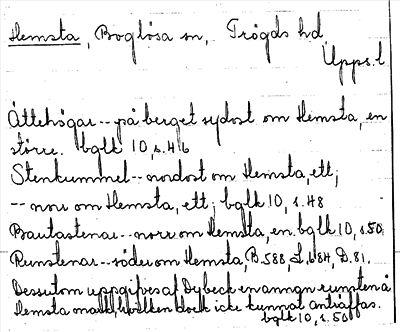 Hemsta, Boglösa sn, Trögds hd,
Upps. l
Ättehögar -- på berget sydost om Hemsta, en
större. bglk 10, s. 46
Stenkummel -- nordost om Hemsta, ett;
-- norr om Hemsta, ett; bglk 10, s. 48
Bautastenar -- norr om Hemsta, en. bglk 10, s. 50.
Runstenar -- söder om Hemsta, B. 588, L. 684, D. 81.
Dessutom uppgifves af Dybeck en annan runsten å
Hemsta mark, hvilken dock icke kunnat anträffas.
bglk 10, s. 50